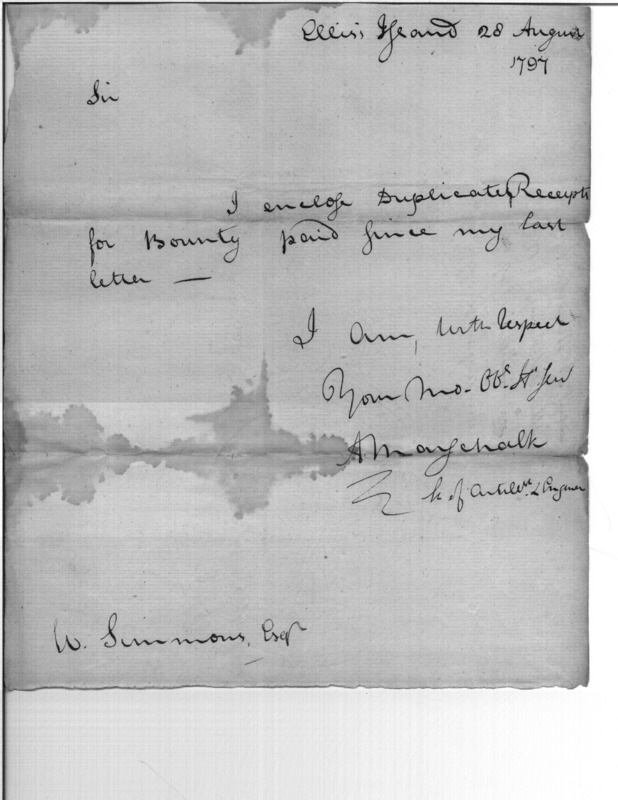 Ellis's Island 28 August
1797
Sir
I enclose Duplicates Receipts
for Bounty paid since my last
letter —
I am, with respect
Your Mo. Ob. H Ser
A Marschalk
of Artill & Engineer
W. Simmons, Esqr